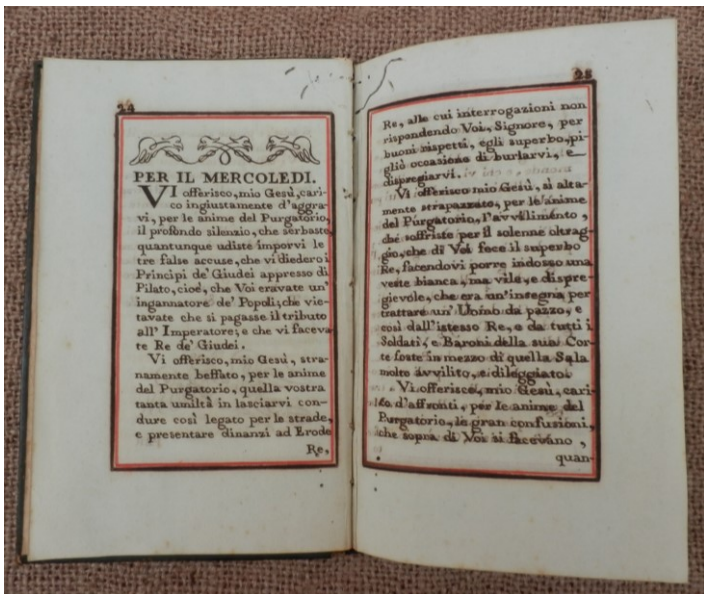 24
PER IL MERCOLEDI.
VI offerisco, mio Gesù, cari-
co ingiustamente d'aggra-
vi, per le anime del Purgatorio,
il profondo silenzio, che serbaste
quantunque udiste imporvi le
tre false accuse, che vi diedero i
Principi de' Giudei appresso di
Pilato, cioè, che Voi eravate un'
ingannatore de' Popoli, che vie-
tavate che si pagasse il tributo
all' Imperatore; e che vi faceva-
te Re de' Giudei.
Vi offerisco, mio Gesù, stra-
namente beffato, per le anime
del Purgatorio, quella vostra
tanta umiltà in lasciarvi con-
dure così legato per le strade,
e presentare dinanzi ad Erode
Re,
25
Re, alle cui interrogazioni non
rispondendo Voi, Signore, per
buoni rispetti, egli superbo, pi-
gliò occasione di burlarvi, e
dispregiarvi.
Vi offerisco mio Gesù, sì alta-
mente strapazzato, per le anime
del Purgatorio, l'avvilimento,
che soffriste per il solenne oltrag-
gio, che di Voi fece il superbo
Re, facendovi porre indosso una
veste bianca, ma vile, e dispre-
gievole, che era un'insegna per
trattare un' Uomo da pazzo, e
così dall'istesso Re, e da tutti i
Soldati, e Baroni della sua Cor-
te foste in mezzo di quella Sala
molto avvilito, e dileggiato.
Vi offerisco, mio Gesù, cari-
co d'affronti, per le anime del
Purgatorio, le gran confusioni,
che sopra di Voi si facevano,
quan-